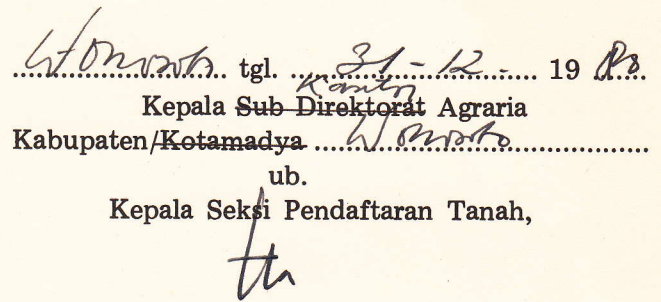 Wonosobo tgl. 31-12-1980
Kantor
Kepala Sub Direktorat Agraria
Kabupaten/Kotamadya Wonosobo
ub.
Kepala Seksi Pendaftaran Tanah,